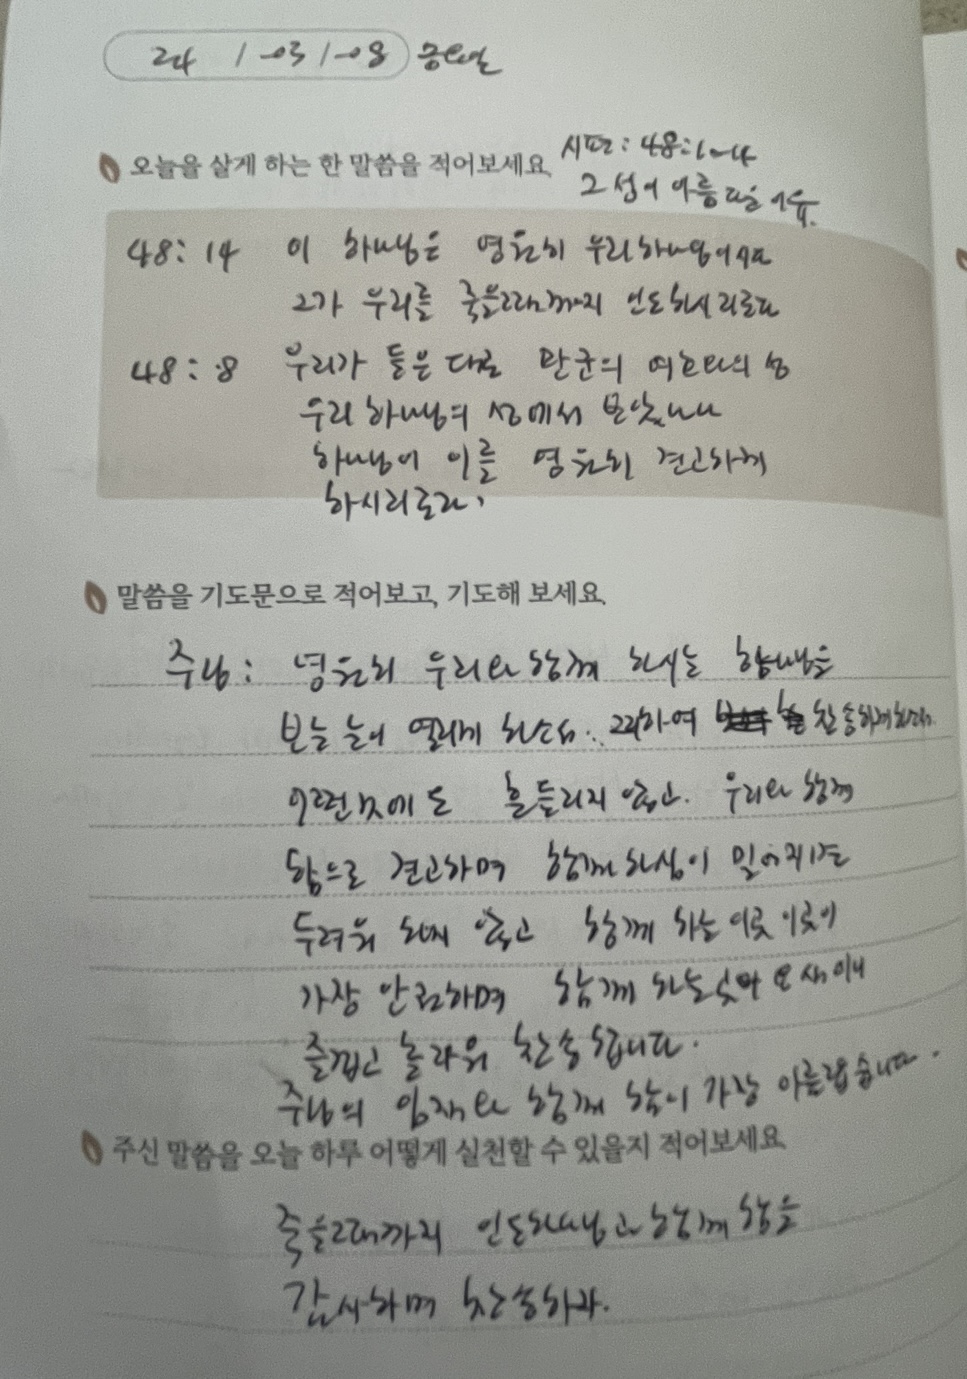 24 / 03 / 08 금요일
오늘을 살게 하는 한 말씀을 적어보세요.
시편: 48:1-14
그 성이 아름다운 이유.
48: 14 이 하나님은 영원히 우리 하나님이시니
그가 우리를 죽을 때까지 인도하시리로다
48: 8 우리가 들은 대로 만군의 여호와의 성
우리 하나님의 성에서 보았나니
하나님이 이를 영원히 견고하게
하시리로다.
말씀을 기도문으로 적어보고, 기도해 보세요.
주님: 영원히 우리와 함께 하시는 하나님을
보는 눈이 열리게 하소서. 그리하여 찬송하게 하소서.
어떤 것에도 흔들리지 않고. 우리와 함께
함으로 견고하며 함께 하심이 믿어지면
두려워 하지 않고 함께 하는 이곳 이곳이
가장 안전하며 함께 하는
즐겁고 놀라워 찬송합니다.
주님의 임재와 함께 함이 가장 아름답습니다.
주신 말씀을 오늘 하루 어떻게 실천할 수 있을지 적어보세요.
죽을 때까지 인도하나님과 함께 함을
감사하며 찬송하라.